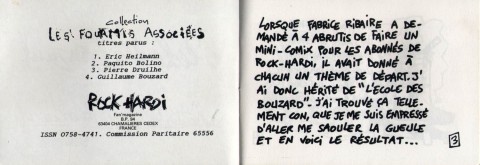 collection
LES FOUAMIS ASSOCIÉES
titres parus :
1. Eric Heilmann
2. Paquito Bolino
3. Pierre Druilhe
4. Guillaume Bouzard
ROCK HARDI
Fan'magazine
B.P. 94
63404 CHAMALIERES CEDEX
FRANCE
ISSN 0758-4741. Commission Paritaire 65556
LORSQUE FABRICE RIBAIRE A DE-
MANDÉ À 4 ABRUTIS DE FAIRE UN
MINI-COMIX POUR LES ABONNÉS DE
ROCK-HARDI, IL AVAIT DONNÉ À
CHACUN UN THÈME DE DÉPART. J'
AI DONC HÉRITÉ DE "L'ÉCOLE DES
BOUZARD". J'AI TROUVÉ ÇA TELLE-
MENT CON, QUE JE ME SUIS EMPRESSÉ
D'ALLER ME SAOULER LA GUEULE
ET EN VOICI LE RÉSULTAT...
3